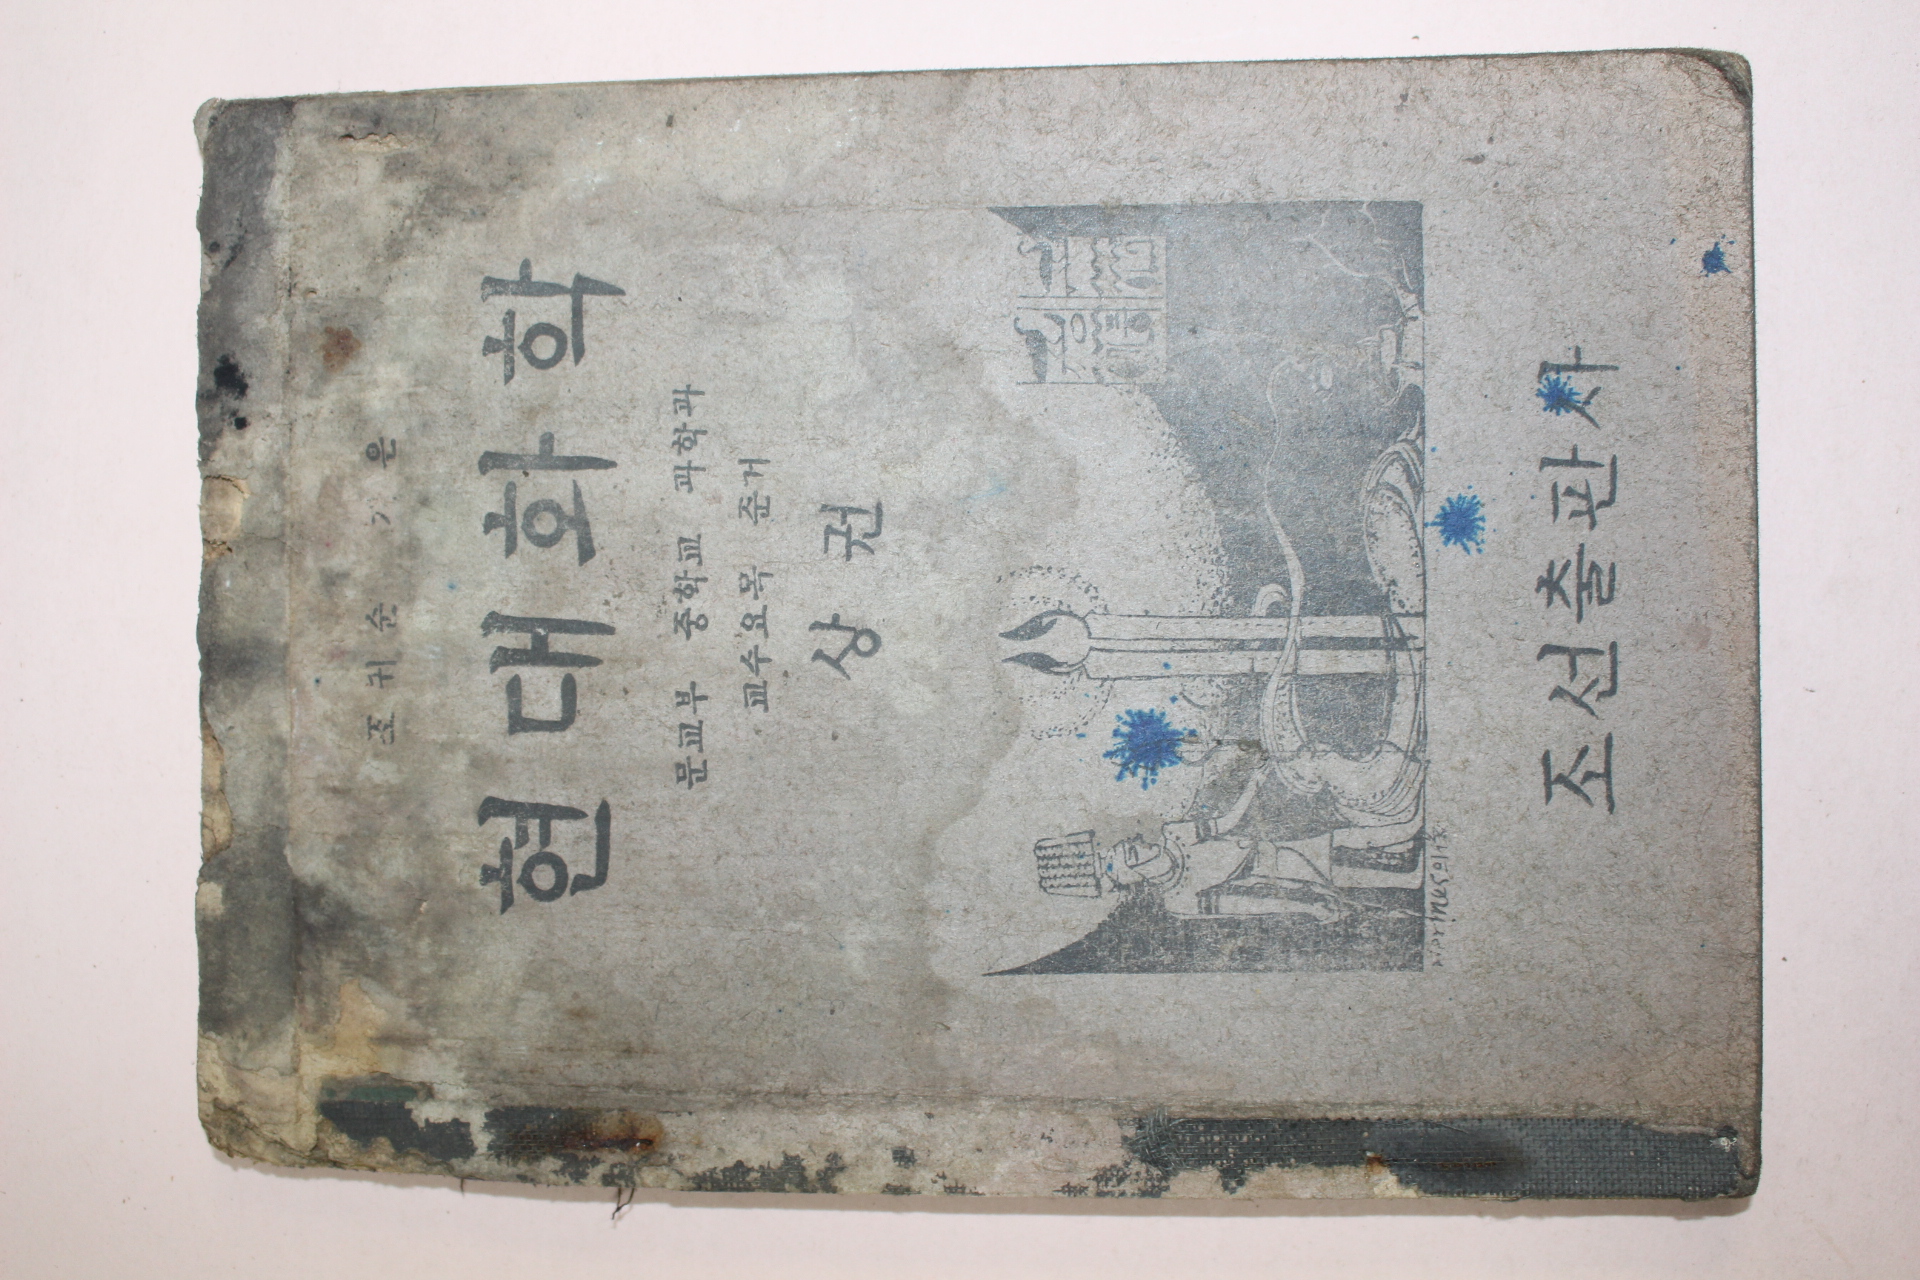 조귀순 지은
현대화학
문교부 중학교 과학과
교수요목 준거
상권
조선출판사